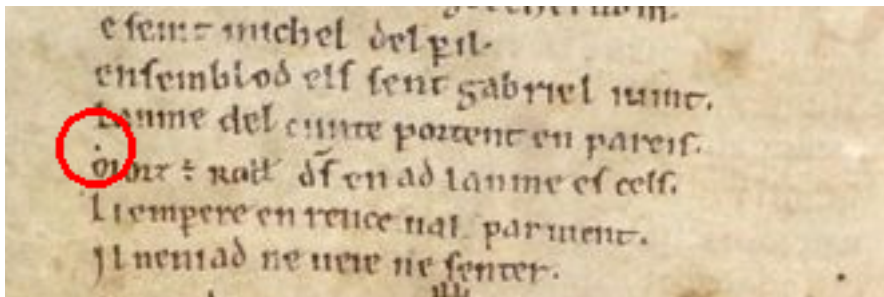 e seint michel del pil.
ensemblod els sent gabriel uint.
Lanme del cunte portent en pareis.
Mort ē roll' ds en ad lanme es cels.
Li empere en rence ual paruient.
Il nen i ad ne ueie ne senter.